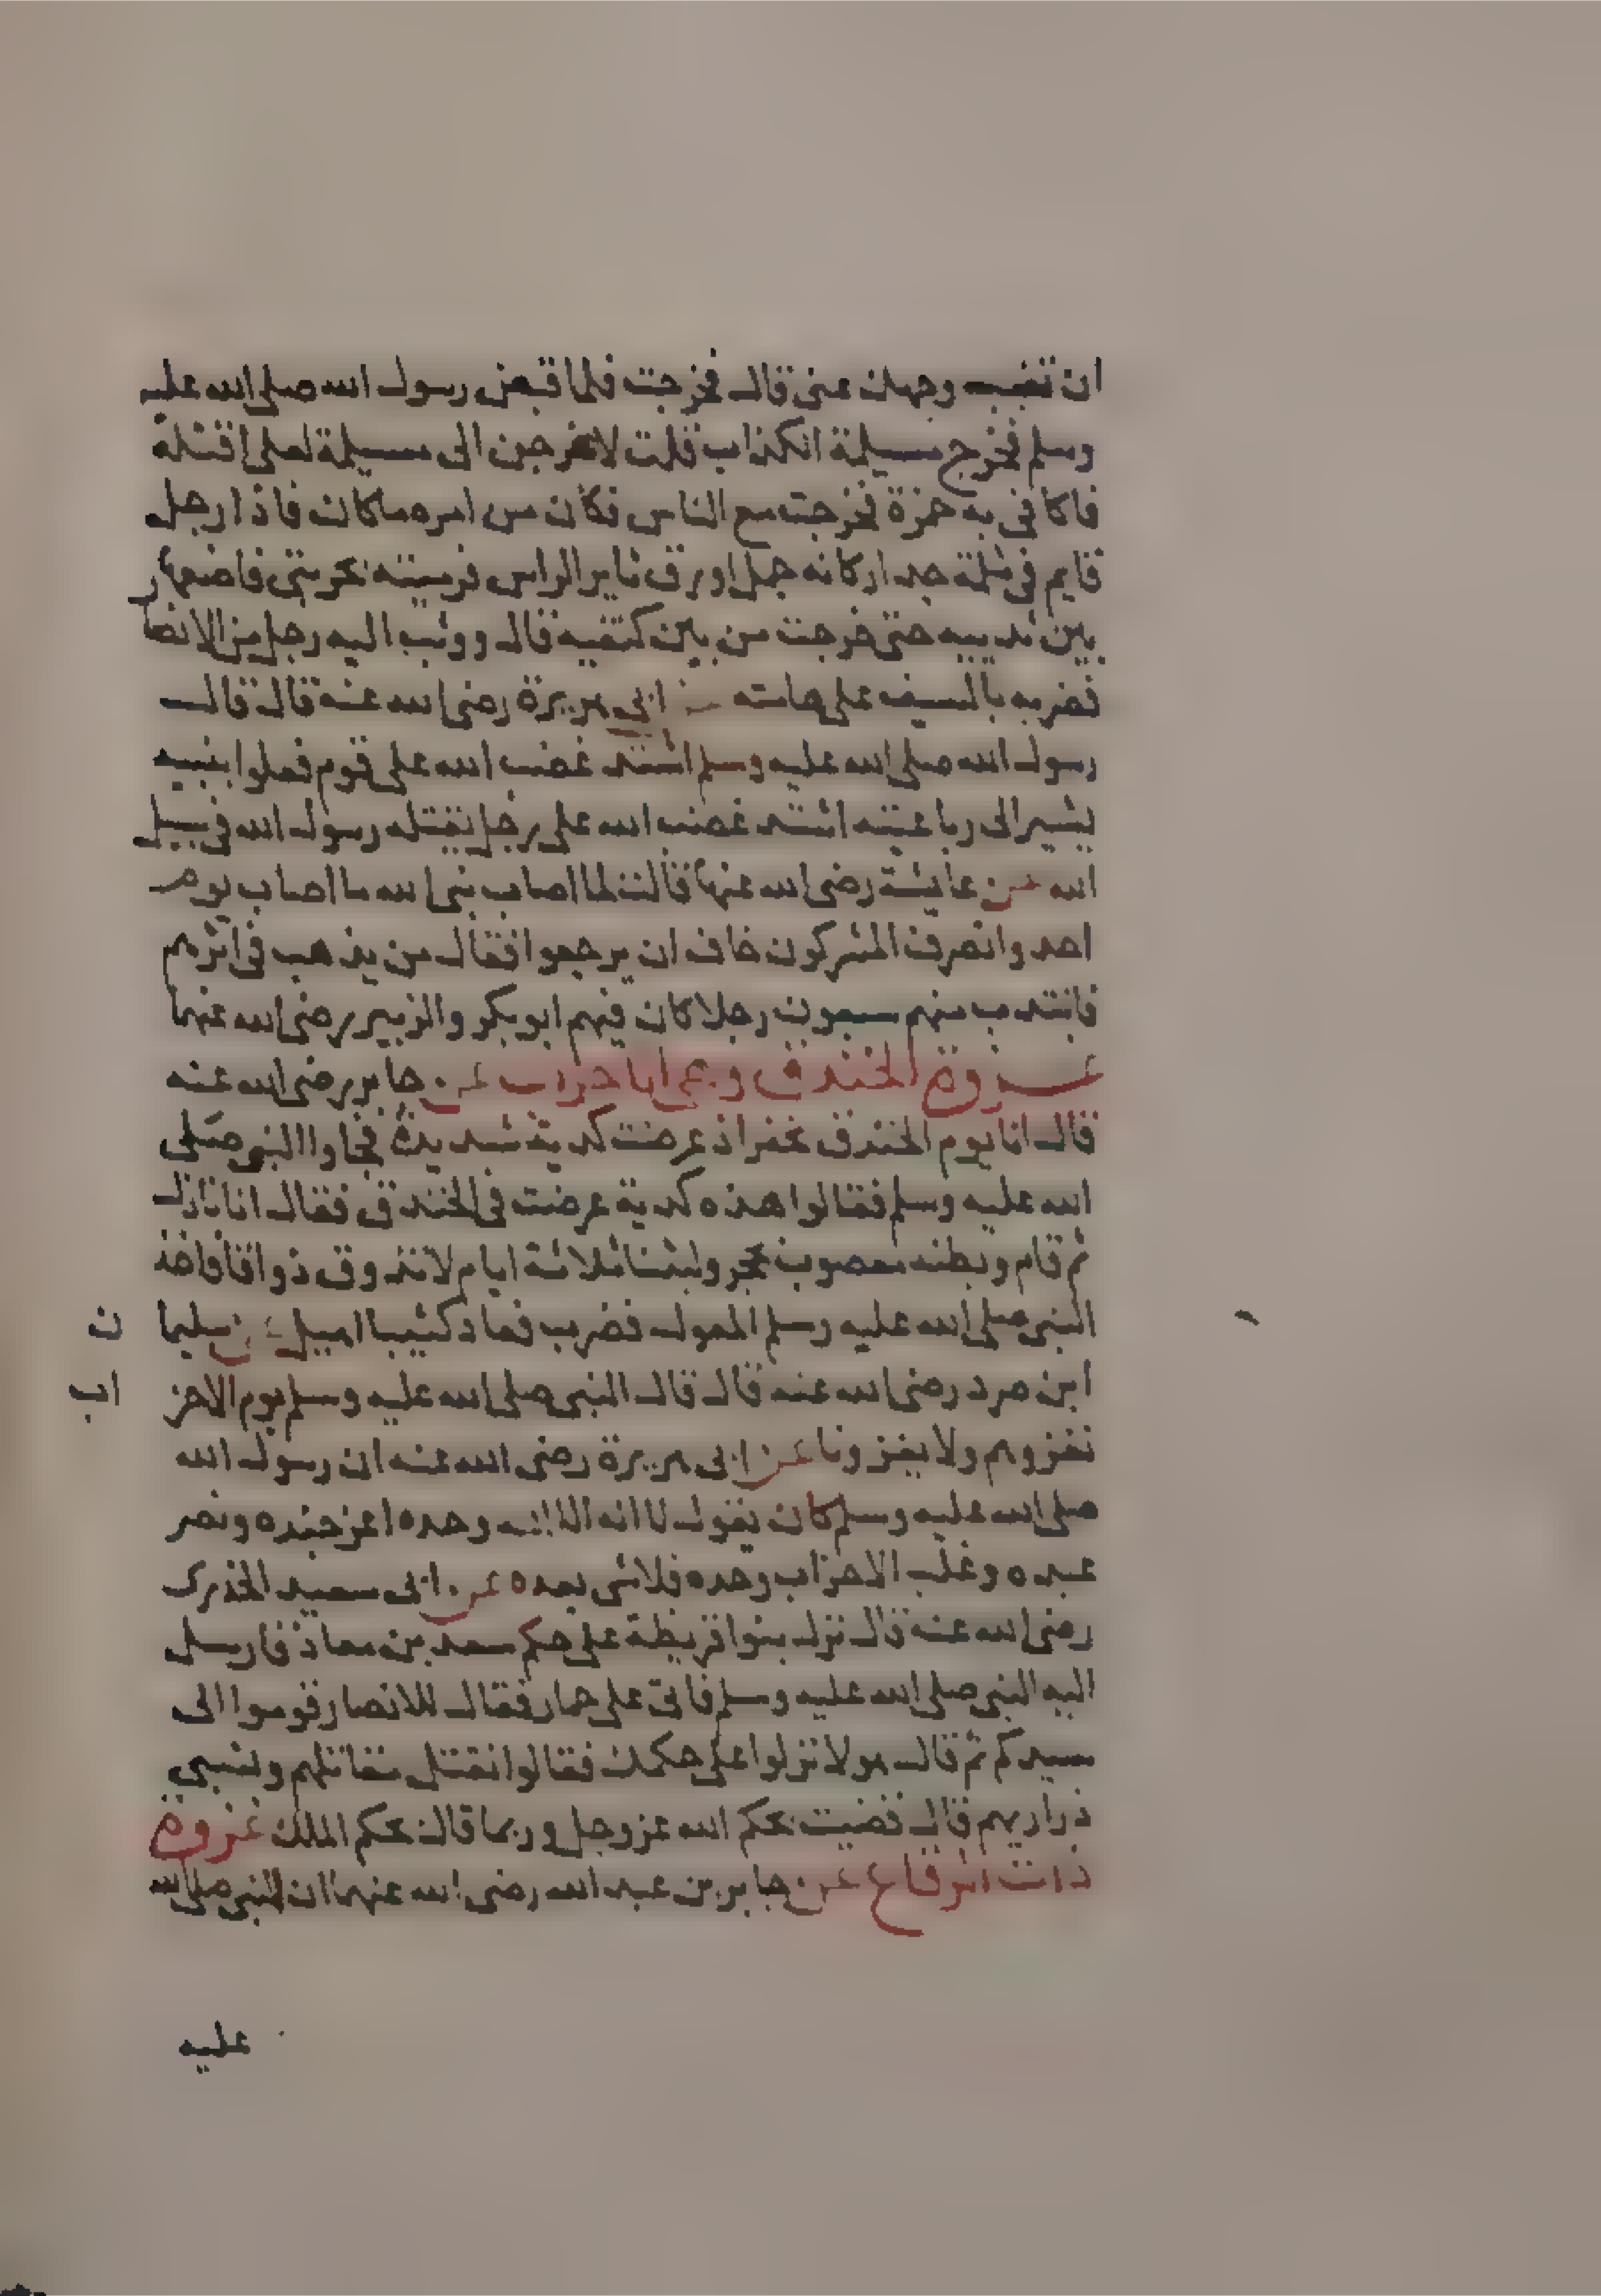 ان تغيب وجهك عنى قال فخرجت فلما قبض رسول الله صلى الله عليه
وسلم فخرج مسيلمة الكذاب قلت لاخرجن الى مسيلمة لعلى اقتله
فاكافى به حمزة فخرجت مع الناس فكان من امره ماكان فاذا رجل
قايم فى ثلمة جدار كانه جمل اورق ثاير الراس فرميته بحربتى فاضعها
بين ثدييه حتى خرجت من بين كتفيه قال ووثب اليه رجل من الانصار
فضربه بالسيف على هامته عن ابى هريرة رضى الله عنه قال قال
رسول الله صلى الله عليه وسلم اشتد غضب الله على قوم فعلوا بنبيه
يشير الى رباعيته اشتد غضب الله على رجل يقتله رسول الله فى سبيل
الله عن عايشة رضى الله عنها قالت لما اصاب نبى الله ما اصاب يوم
احد وانصرف المشركون خاف ان يرجعوا فقال من يذهب فى اثرهم
فانتدب منهم سبعون رجلا كان فيهم ابو بكر والزبير رضى الله عنهما
غزوة الخندق وهى الاحزاب عن جابر رضى الله عنه
قال انا يوم الخندق نحفر اذ عرضت كدية شديدة فجاوا النبى صلى
الله عليه وسلم فقالوا هذه كدية عرضت فى الخندق فقال انا نازل
ثم قام وبطنه معصوب بحجر ولبثنا ثلاثة ايام لا نذوق ذواقا فاخذ
النبى صلى الله عليه وسلم المعول فضرب فعاد كثيبا اهيل عن سليما ن
ابن صرد رضى الله عنه قال قال النبى صلى الله عليه وسلم يوم الاحز اب
نغزوهم ولا يغزونا عن ابى هريرة رضى الله عنه ان رسول الله
صلى الله عليه وسلم كان يقول لا اله الا الله وحده اعز جنده ونصر
عبده وغلب الاحزاب وحده فلا شى بعده عن ابى سعيد الخدرى
رضى الله عنه قال نزل بنوا قريظة على حكم سعد بن معاذ فارسل
اليه النبى صلى الله عليه وسلم فاتى على حمار فقال للانصار قوموا الى
سيدكم ثم قال هولا نزلوا على حكمك فقالوا نقتل مقاتلهم ونسبى
ذراريهم قال قضيت بحكم الله عز وجل وربما قال بحكم الملك غزوة
ذات الرقاع عن جابر بن عبد الله رضى الله عنهما ان النبى صلى الله
عليه